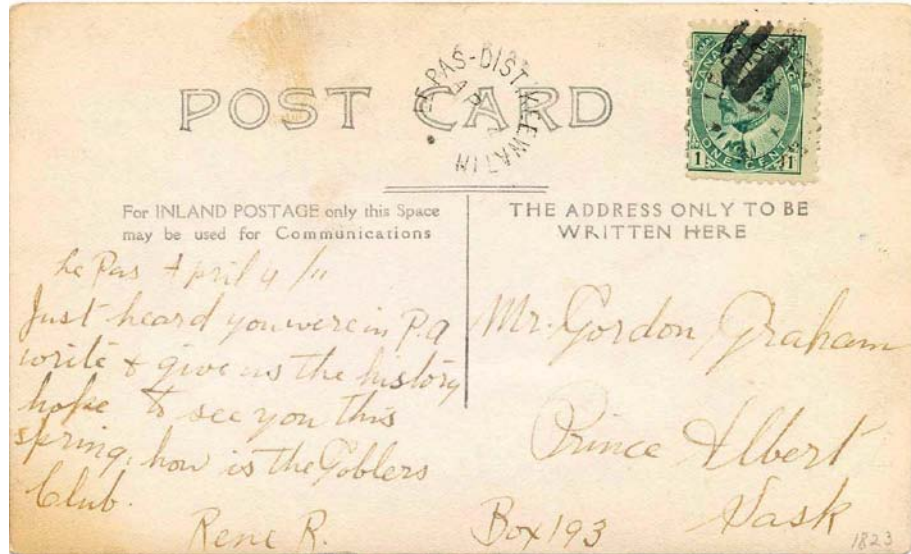 POST CARD
LE PAS-DIST. KEEWATIN
AP
CANADA POSTAGE
ONE CENT
1 1
For INLAND POSTAGE only this Space
may be used for Communications
THE ADDRESS ONLY TO BE
WRITTEN HERE
Le Pas April 4/11
Just heard you were in P.A
write & give us the history
hope to see you this
spring, how is the Goblers
Club.
Rene R.
Mr. Gordon Graham
Prince Albert
Sask
Box 193
1823